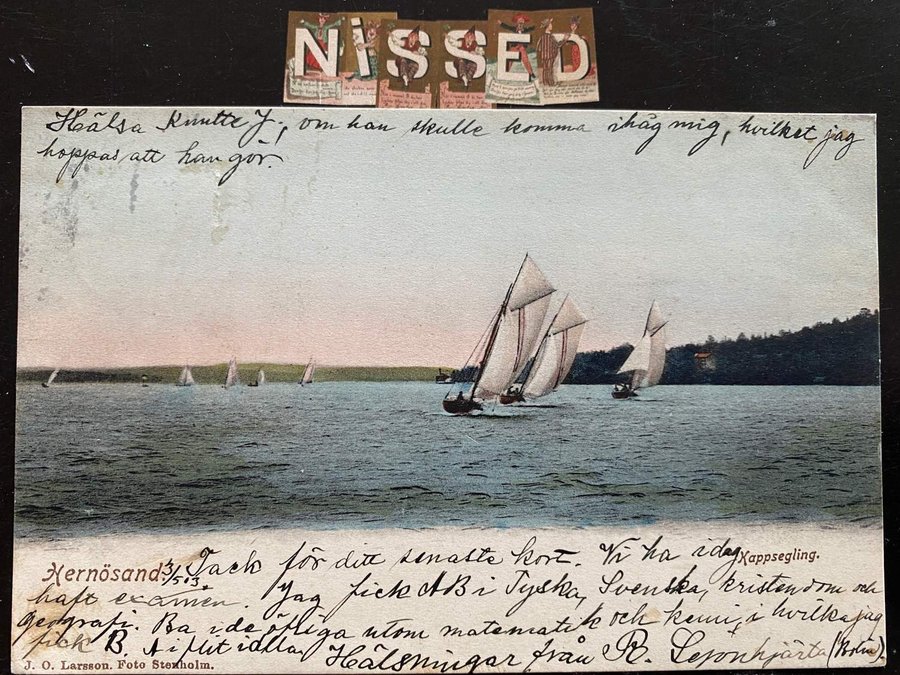 NiSSED
Hälsa Knutte J, om han skulle komma ihåg mig, hvilket jag
hoppas att han gör.
Kappsegling.
Hernösand. 3/5 03. Tack för ditt senaste kort. Vi ha idag
haft examen. Jag fick AB i Tyska, Svenska, kristendom och
geografi. Ba i de öfriga utom matematik och kemi, i hvilka jag
fick B. A i flit i alla. Hälsningar från R. Lejonhjärta (Holm).
J. O. Larsson. Foto Stenholm.